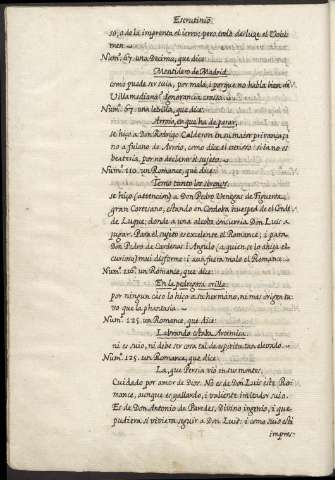 Escrutinio
so, o de la imprenta el ierro; pero todo desluze el Volu
men.
Num. 67. una Dezima, que dize:
Mentidero de Madrid,
como puede ser suia, por mala, i porque no habla bien de
Villamediana? ignorancia crassa.
Num. 67. una letrilla, que dize:
Arroio, en que ha de parar,
se hizo a Don Rodrigo Calderon en su maior privança i
no a fulano de Arroio, como dize el
por no declarar el sujeto.
Num. 110. un Romance, que dize:
Temo tanto los
se hizo (attencion) a Don Pedro Venegas de Figueroa
gran Cortesano, estando en Cordova huesped de el Conde
de Luque; donde a una alcoba concurria Don Luis a
jugar. Para el sujeto es excelente el Romance; i para
Don Pedro de Cardenas i Angulo (a quien se lo ahija el
curioso) mui disforme: i aun fuera malo el Romance.
Num. 120. un Romance, que dize:
En la pedregosa orilla
por ningun caso lo hizo a su hermano, ni mas origen tu
vo que la phantasia.
Num. 125. un Romance, que dize:
Labrando estaba Artemisa
ni es suio, ni debe ser cosa tal de espiritu tan elevado.
Num. 125. un Romance, que dize
La, que Persia vio en sus montes,
Cuidado por amor de Dios. No es de Don Luis este Ro
mance, aunque es gallardo, i valiente imitador suio.
Es de Don Antonio de Paredes, Divino ingenio, i que
pudiera si viviera seguir a Don Luis: i como suio està
impres-